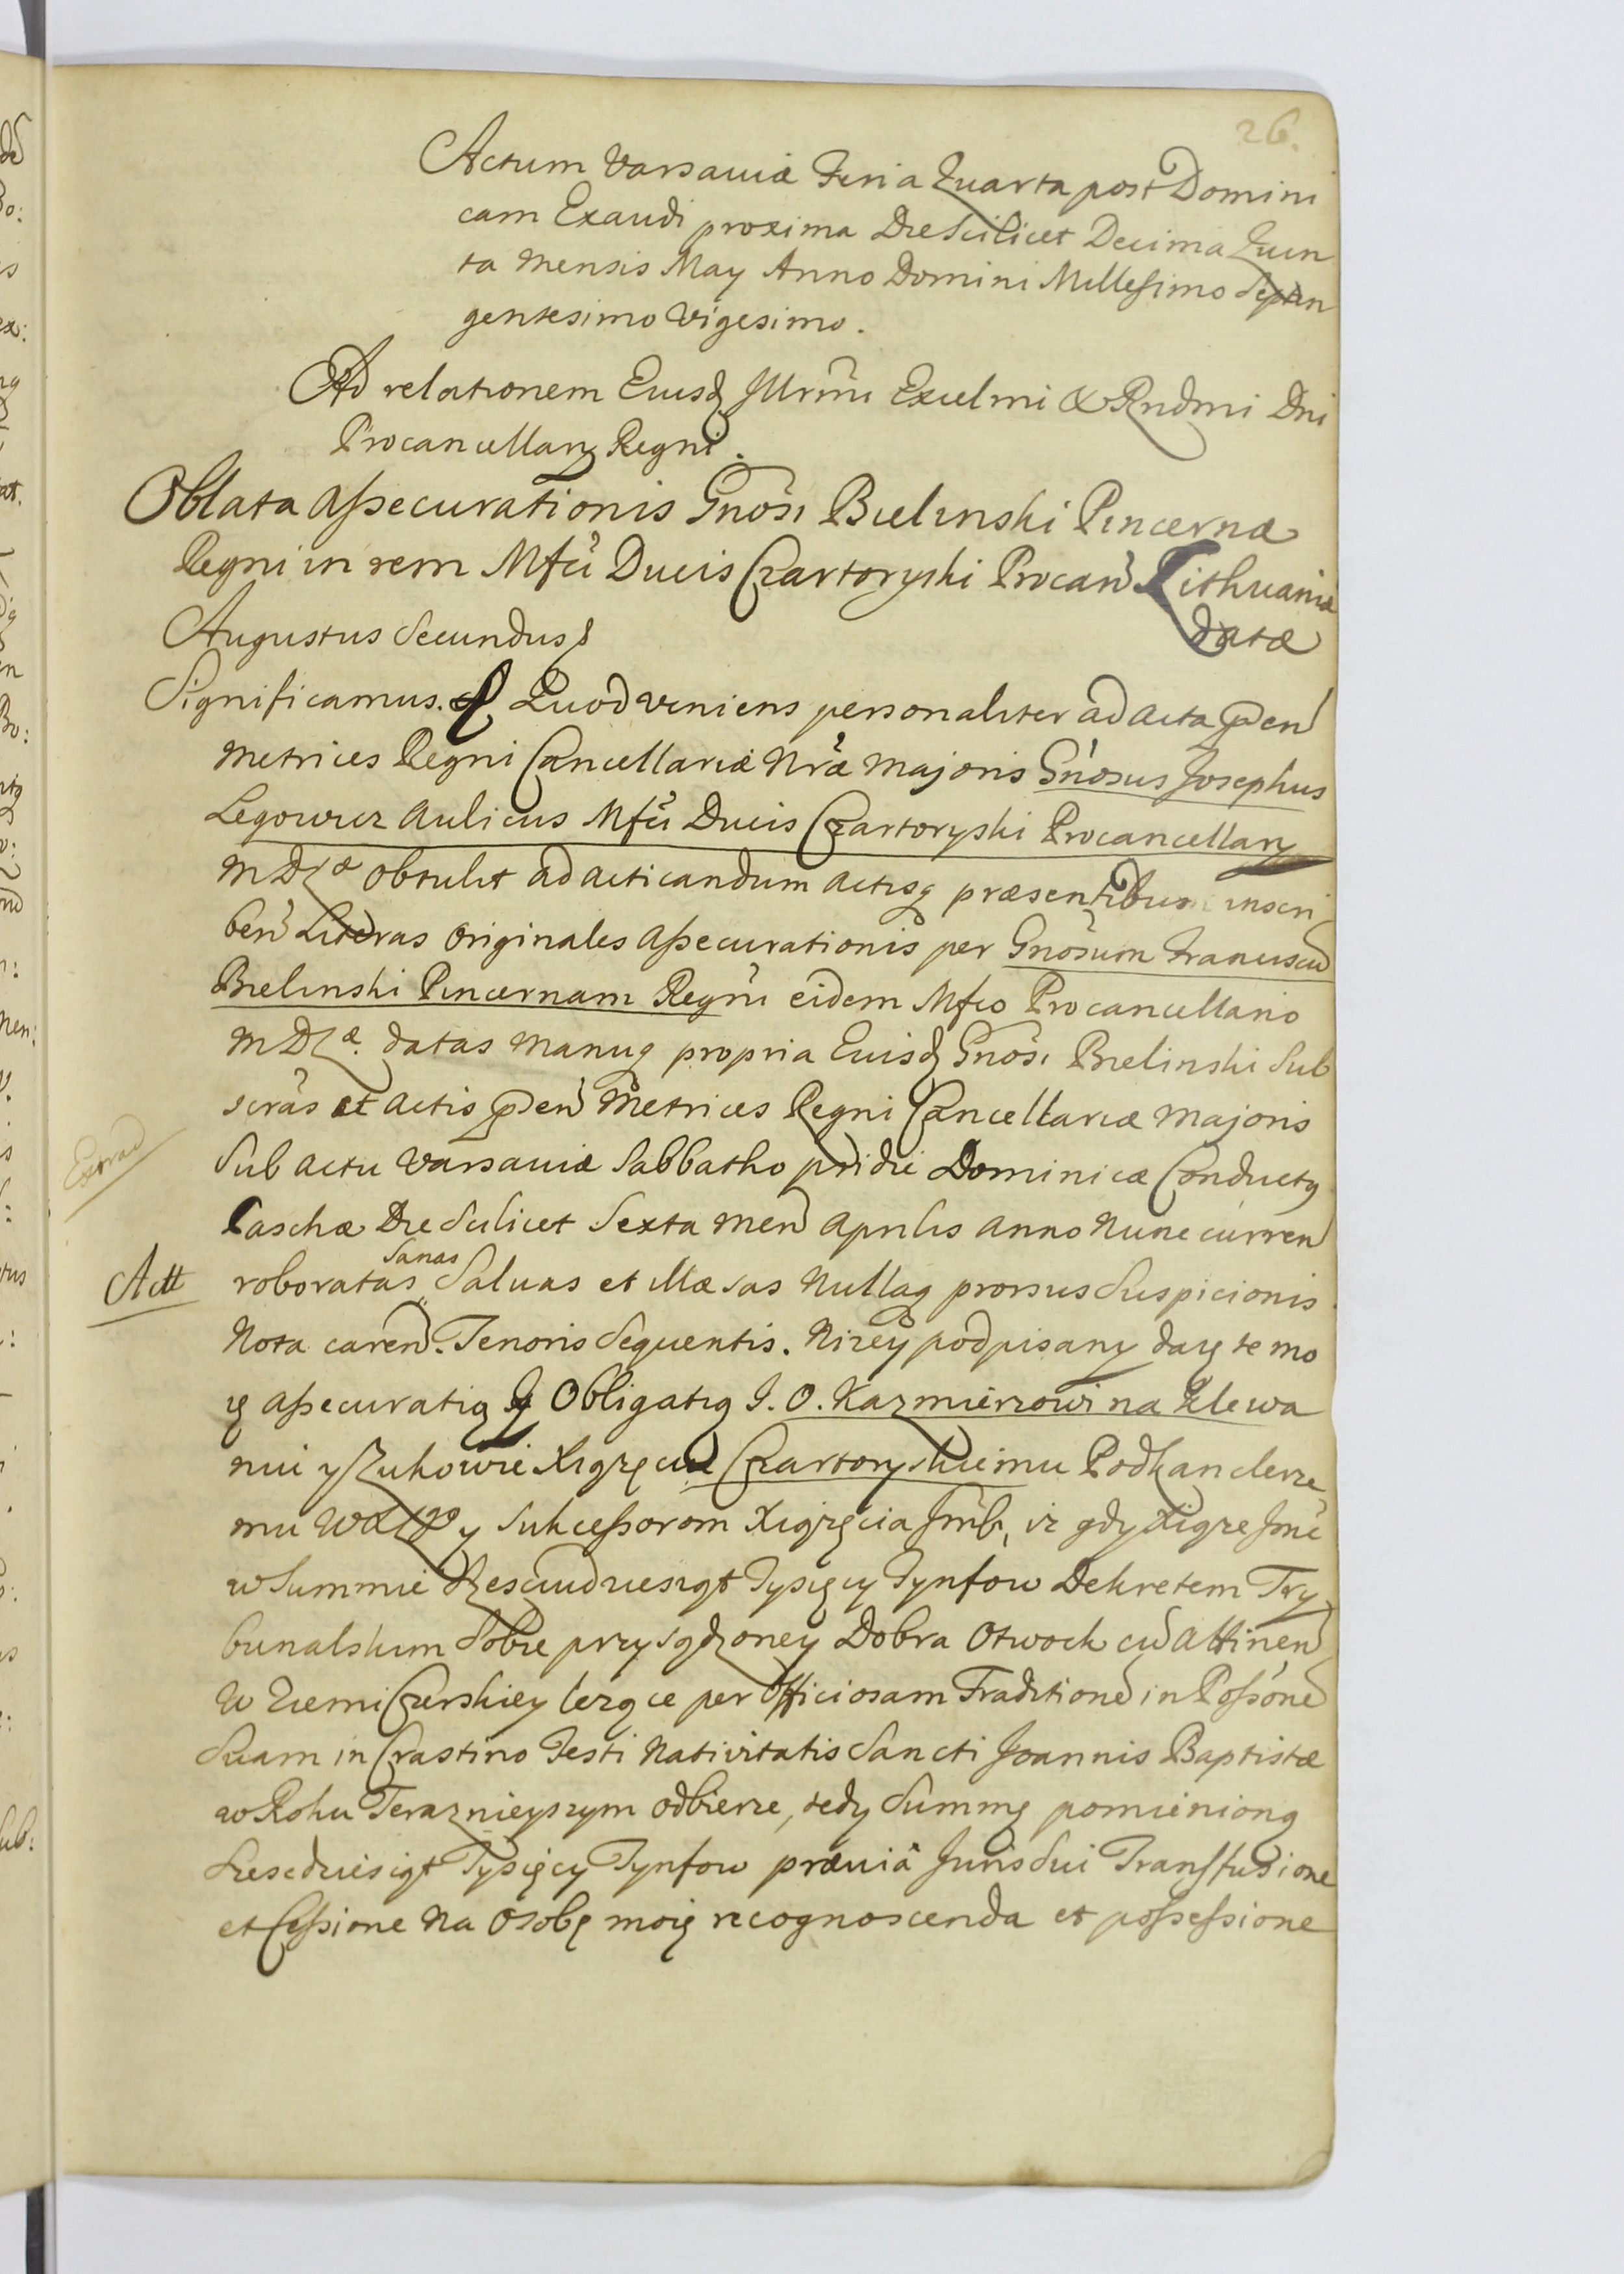 26.
Actum Varsaviæ Feria Quarta post Domini
cam Exaudi proxima Die Scilicet Decima Quin
ta Mensis May Anno Domini Millesimo Septin
gentesimo Vigesimo.
Ad relationem Eiusd Illrmi Excelmi & Rndmi Dni
Procancellary Regni.
Oblata Assecurationis Gnosi Bielinski Pincernæ
Regni in rem Mfci Ducis Czartoryski Procan Lithuaniæ
datæ
Augustus Secundus
Significamus. Quod veniens personaliter ad acta pñ
Metrices Regni Cancellariæ Nræ Majoris Gnosus Josephus
Legowicz Aulicus Mfci Ducis Czartoryski Procancellary
MDLæ obtulit ad acticandum actisq præsentibus inscri
ben Literas Originales Assecurationis per Gnosum Franciscu
Bielinski Pincernam Regni eidem Mfco Procancellario
MDLæ. datas Manuq propria Eiusd Gnosi Bielinski Sub
scras et Actis pñ Metrices Regni Cancellariæ Majoris
Sub actu Varsaviæ Sabbatho pridie Dominicæ Conductus
Paschæ Die Scilicet Sexta Men Aprilis Anno Nunc curren
Actt roboratas Sanas Salvas et illæsas Nullaq prorsus Suspicionis
Nota caren. Tenoris Sequentis. Nizey podpisany daię te mo
ię Assecuratią y Obligatią J. O. Kazmierzowi na Klewa
niu y Zukowie Xiążęciu Czartoryskiemu Podkanclerze
mu WXLgo y Sukcessorom Xiążęcia Jmci, iż gdy Xiąze Jmc
w Summie Szescdziesiąt Tysięcy Tynfow Dekretem Try
bunalskim Sobie przysądzoney Dobra Otwock cu Attinen
w Ziemi Czerskiey lezące per Officiosam Traditione in Possone
Suam in Crastino Festi Nativitatis Sancti Joannis Baptistæ
w Roku Teraznieyszym odbierze, tedy Summę pomienioną
Szescdziesiąt Tysięcy Tynfow præviâ Juris Sui Transfusione
et Cessione Na Osobę moię recognoscenda et possessione